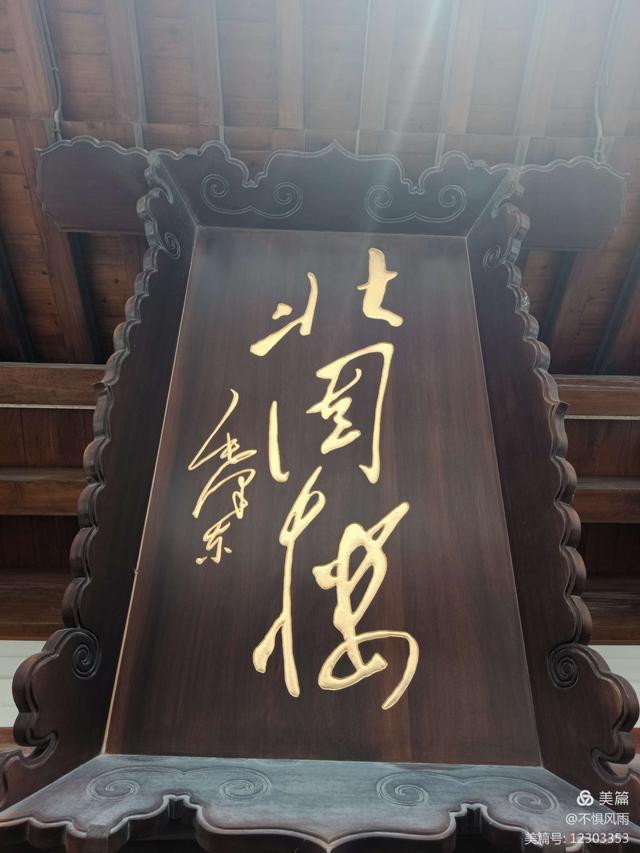 北固楼
毛泽东
美篇
@不惧风雨
美篇号: 12303353